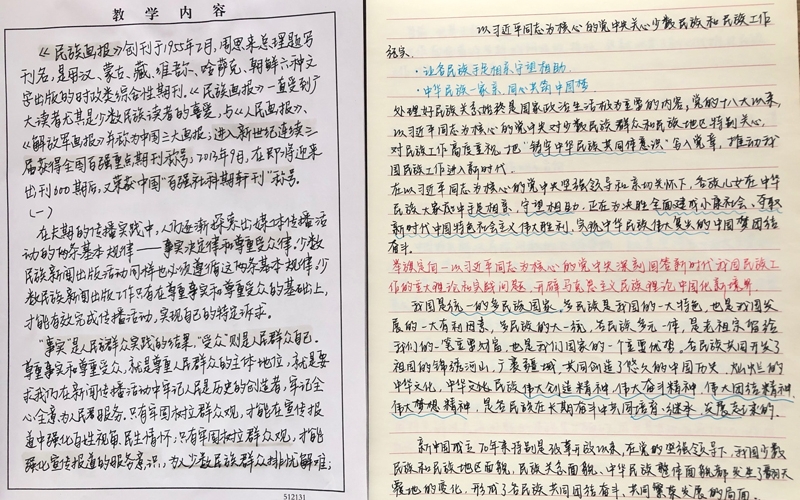 教学内容
《民族画报》创刊于1955年2月,周恩来总理题写
刊名,是用汉、蒙古、藏、维吾尔、哈萨克、朝鲜六种文
字出版的时政类综合性期刊。《民族画报》一直受到广
大读者尤其是少数民族读者的喜爱,与《人民画报》、
《解放军画报》并称为中国三大画报;进入新世纪连续三
届获得全国百强重点期刊称号,2013年9月,在即将迎来
出刊600期后,又荣获中国"百强社科期刊"称号。
(一)
在长期的传播实践中,人们逐渐探索出媒体传播活
动的两条基本规律——事实决定律和尊重受众律。少数
民族新闻出版活动同样也必须遵循这两条基本规律。少
数民族新闻出版工作只有在尊重事实和尊重受众的基础上,
才能有效完成传播活动,实现自己的特定诉求。
"事实"是人民群众实践的结果,"受众"则是人民群众自己。
尊重事实和尊重受众,就是尊重人民群众的主体地位,就是要
求我们在新闻传播活动中牢记人民是历史的创造者,牢记全
心全意为人民服务。只有牢固树立群众观,才能在宣传报
道中强化百姓视角、民生情怀;只有牢固树立群众观,才能
强化宣传报道的服务意识,为少数民族群众排忧解难;
512131
以习近平同志为核心的党中央关心少数民族和民族工作
纪实.
·让各民族手足相亲守望相助.
·中华民族一家亲,同心共筑中国梦
处理好民族关系始终是国家政治生活极为重要的内容,党的十八大以来,
以习近平同志为核心的党中央对少数民族群众和民族地区特别关心,
对民族工作高度重视,把"铸牢中华民族共同体意识"写入党章,推动我
国民族工作进入新时代.
在以习近平同志为核心的党中央坚强领导和亲切关怀下,各族儿女在中华
民族大家庭中手足相亲、守望相助,正在为决胜全面建成小康社会、夺取
新时代中国特色社会主义伟大胜利,实现中华民族伟大复兴的中国梦团结
奋斗.
举旗定向—以习近平同志为核心的党中央深刻回答新时代我国民族工
作的重大理论和实践问题,开辟马克思主义民族理论中国化新境界.
我国是统一的多民族国家,多民族是我国的一大特色,也是我国发
展的一大有利因素,多民族的大一统,各民族多元一体,是老祖宗留给
我们的一笔重要财富,也是我们国家的一个重要优势。各民族共同开发了
祖国的锦绣河山、广袤疆域,共同创造了悠久的中国历史、灿烂的
中华文化,中华文化民族伟大创造精神、伟大奋斗精神、伟大团结精神、
伟大梦想精神,是各民族在长期奋斗中共同培育、继承、发展起来的.
新中国成立70年来特别是改革开放以来,在党的坚强领导下,我国少数
民族和民族地区面貌、民族关系面貌、中华民族整体面貌都发生了翻天
覆地的变化,形成了各民族共同团结奋斗、共同繁荣发展的局面.